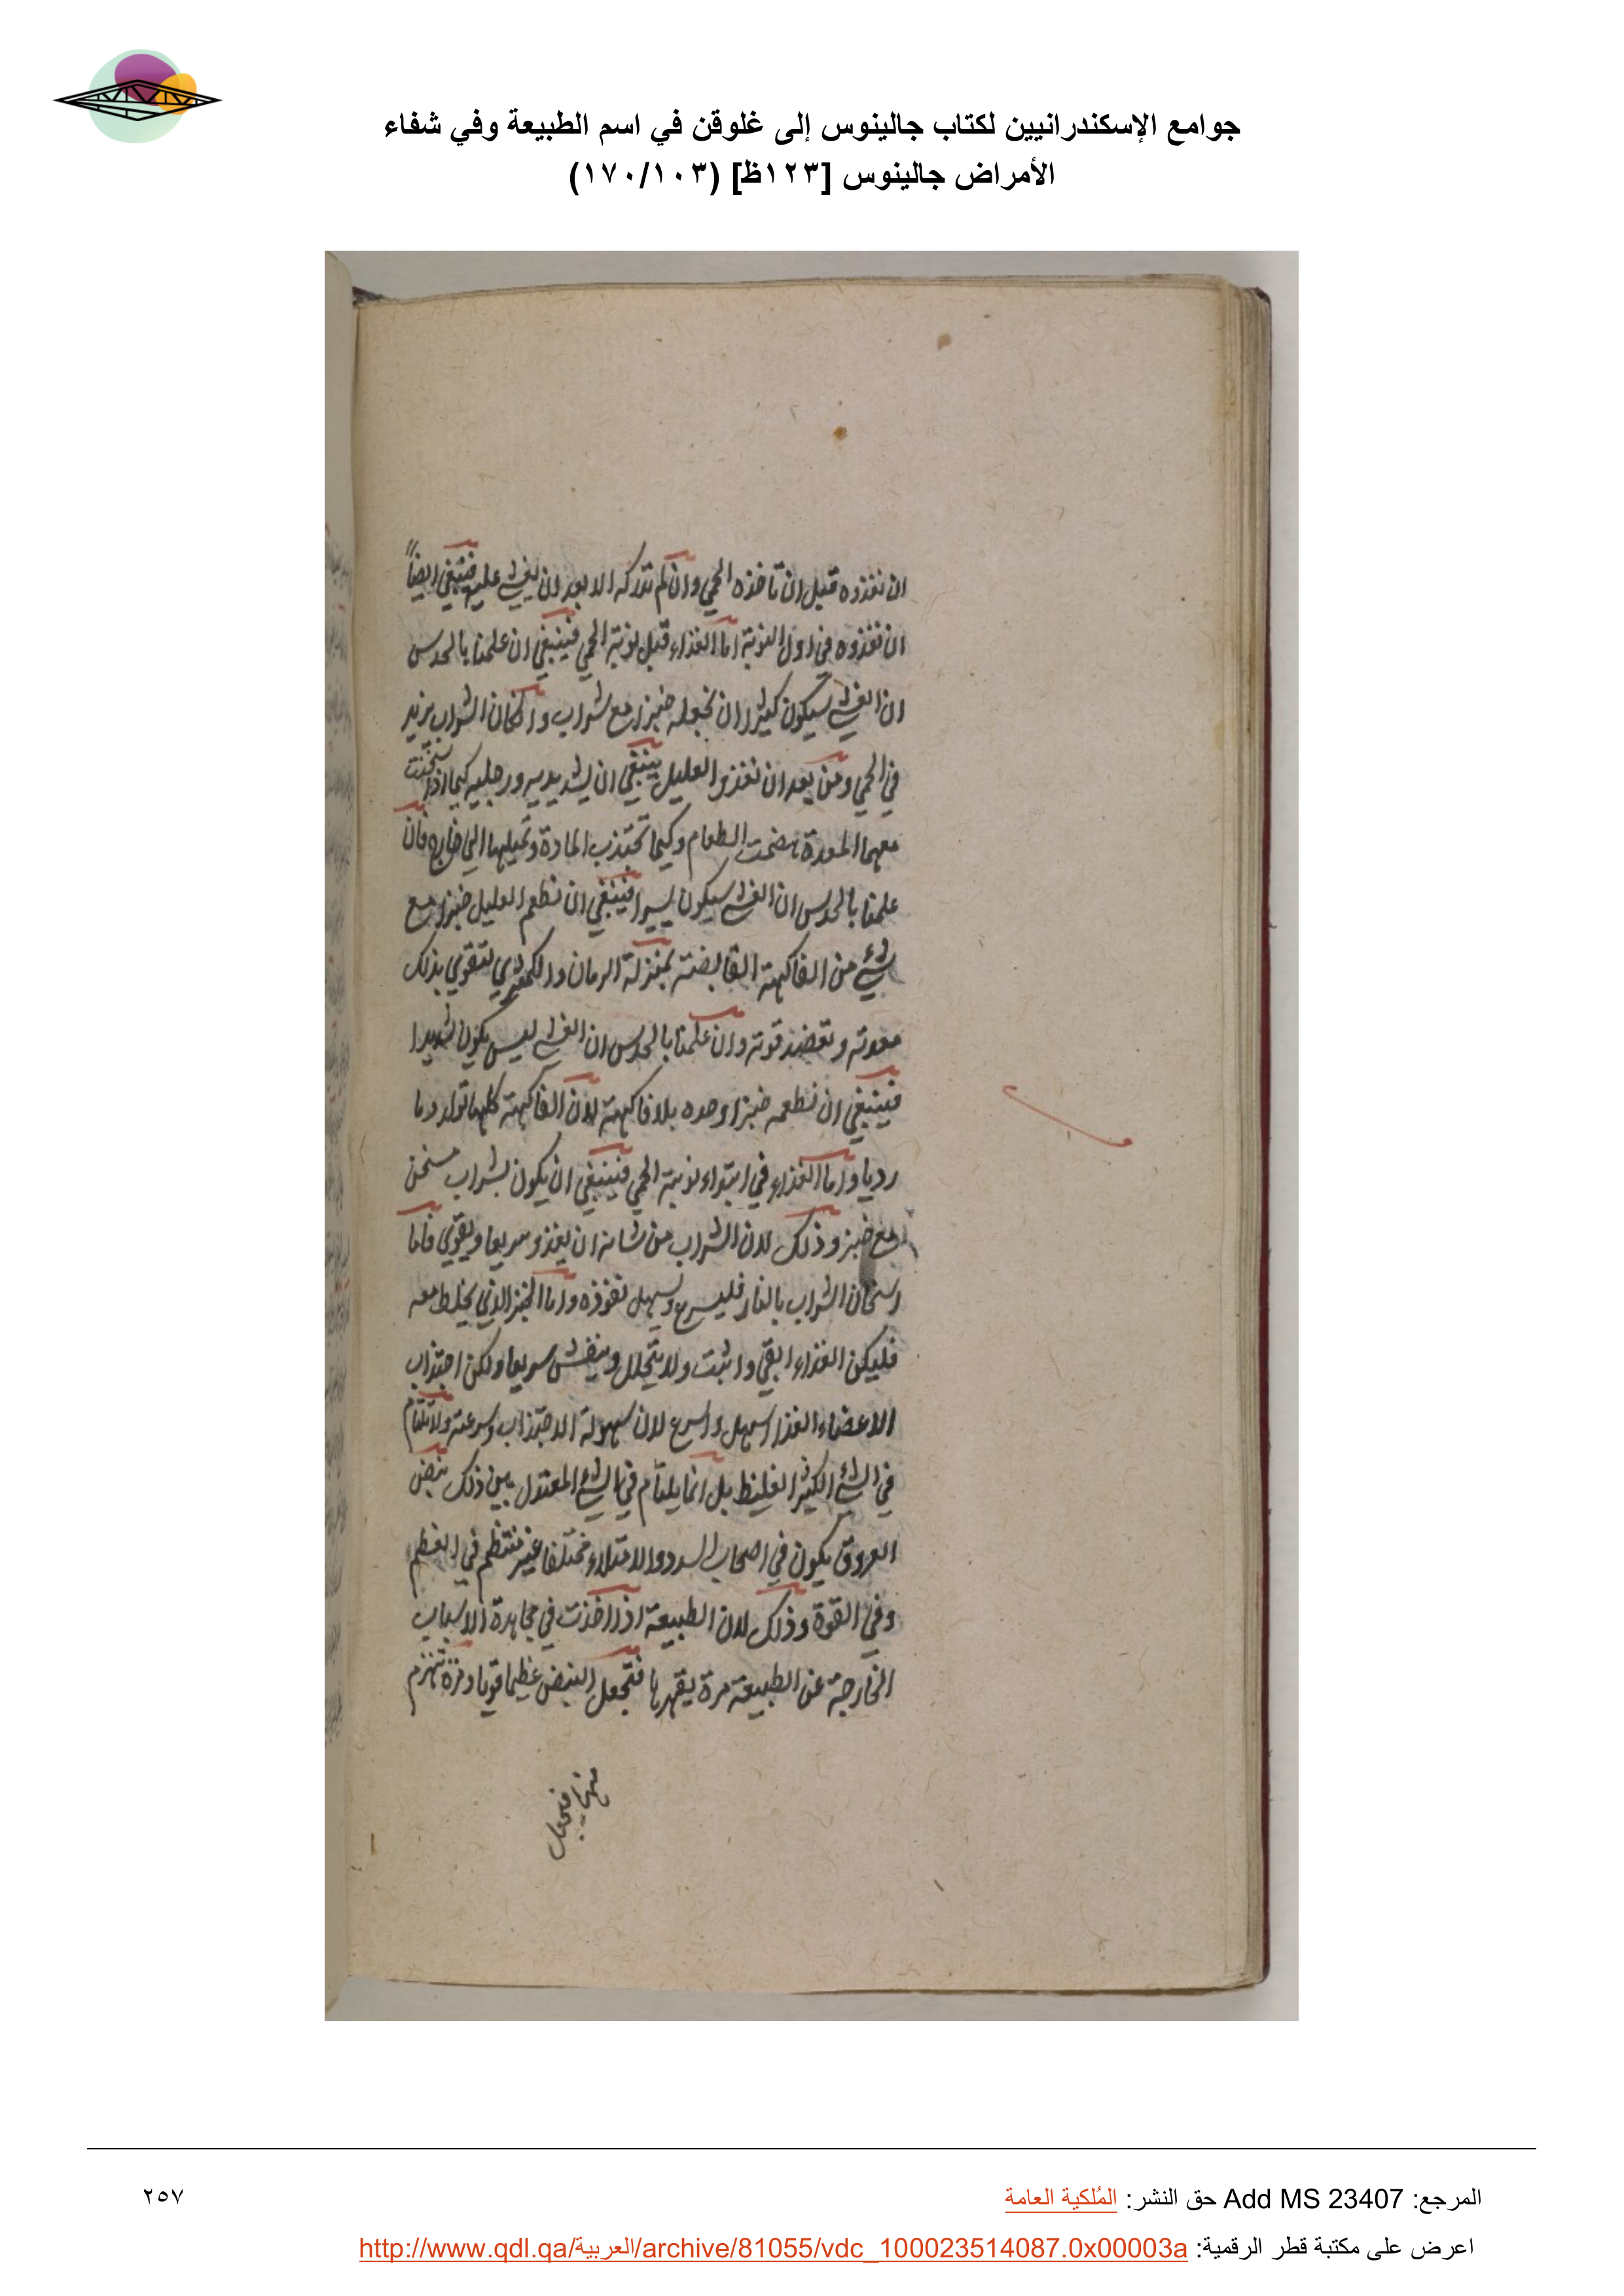 جوامع الإسكندرانيين لكتاب جالينوس إلى غلوقن في اسم الطبيعة وفي شفاء
الأمراض جالينوس [١٢٣ظ] (١٧٠/١٠٣)
ان نغذوه قبل ان تاخذه الحمى وان لم ندركه الا بعد ان يغشى عليه فينبغي ايضاً
ان نغذوه في اول النوبة اما الغذاء قبل نوبة الحمى فينبغي ان علمنا بالحدس
ان الغشي سيكون كثيرا ان نجعله خبزا مع شراب وان كان الشراب يزيد
في الحمى ومن بعد ان نغذو العليل ينبغي ان يشد يديه ورجليه كيما اذا سخنت
معهما المعدة هضمت الطعام وكيما تجتذب المادة وتميلها الى خارج فان
علمنا بالحدس ان الغشي سيكون يسيرا فينبغي ان نطعم العليل خبزا مع
شئ من الفاكهة القابضة بمنزلة الرمان والكمثرى لتقوي بذلك
معدته وتعضد قوته وان علمنا بالحدس ان الغشي ليس يكون شديدا
فينبغي ان نطعمه خبزا وحده بلا فاكهة لان الفاكهة كلها تولد دما
رديا واما الغذاء في ابتداء نوبة الحمى فينبغي ان يكون بشراب مسخن
مع خبز وذلك لان الشراب من شانه ان يغذو سريعا ويقوي فاما
اسخان الشراب بالنار فليسرع ويسهل نفوذه واما الخبز الذي يخلط معه
فليكن الغذاء ابقى واثبت ولا يتحلل وينفش سريعا ولكن اجتذاب
الاعضاء الغذا اسهل واسرع لان سهولة الاجتذاب وسرعته ولا يلتام
في الشئ الكثير الغليظ بل انما يلتام في الشئ المعتدل بين ذلك نبض
العروق يكون في اصحاب السدد والامتلاء مختلفا غير منتظم في العظم
وفي القوة وذلك لان الطبيعة اذا اخذت في مجاهدة الاسباب
الخارجة عن الطبيعة مرة يقهرها فتجعل النبض عظيما قويا ومرة تنهزم
منها فتجعل
المرجع: Add MS 23407 حق النشر: المُلكية العامة
٢٥٧
اعرض على مكتبة قطر الرقمية: http://www.qdl.qa/العربية/archive/81055/vdc_100023514087.0x00003a